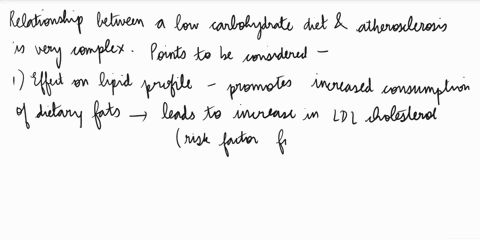 Relationship between a low carbohydrate diet & atherosclerosis
is very complex. Points to be considered –
1) Effect on lipid profile – promotes increased consumption
of dietary fats → leads to increase in LDL cholesterol
(risk factor f